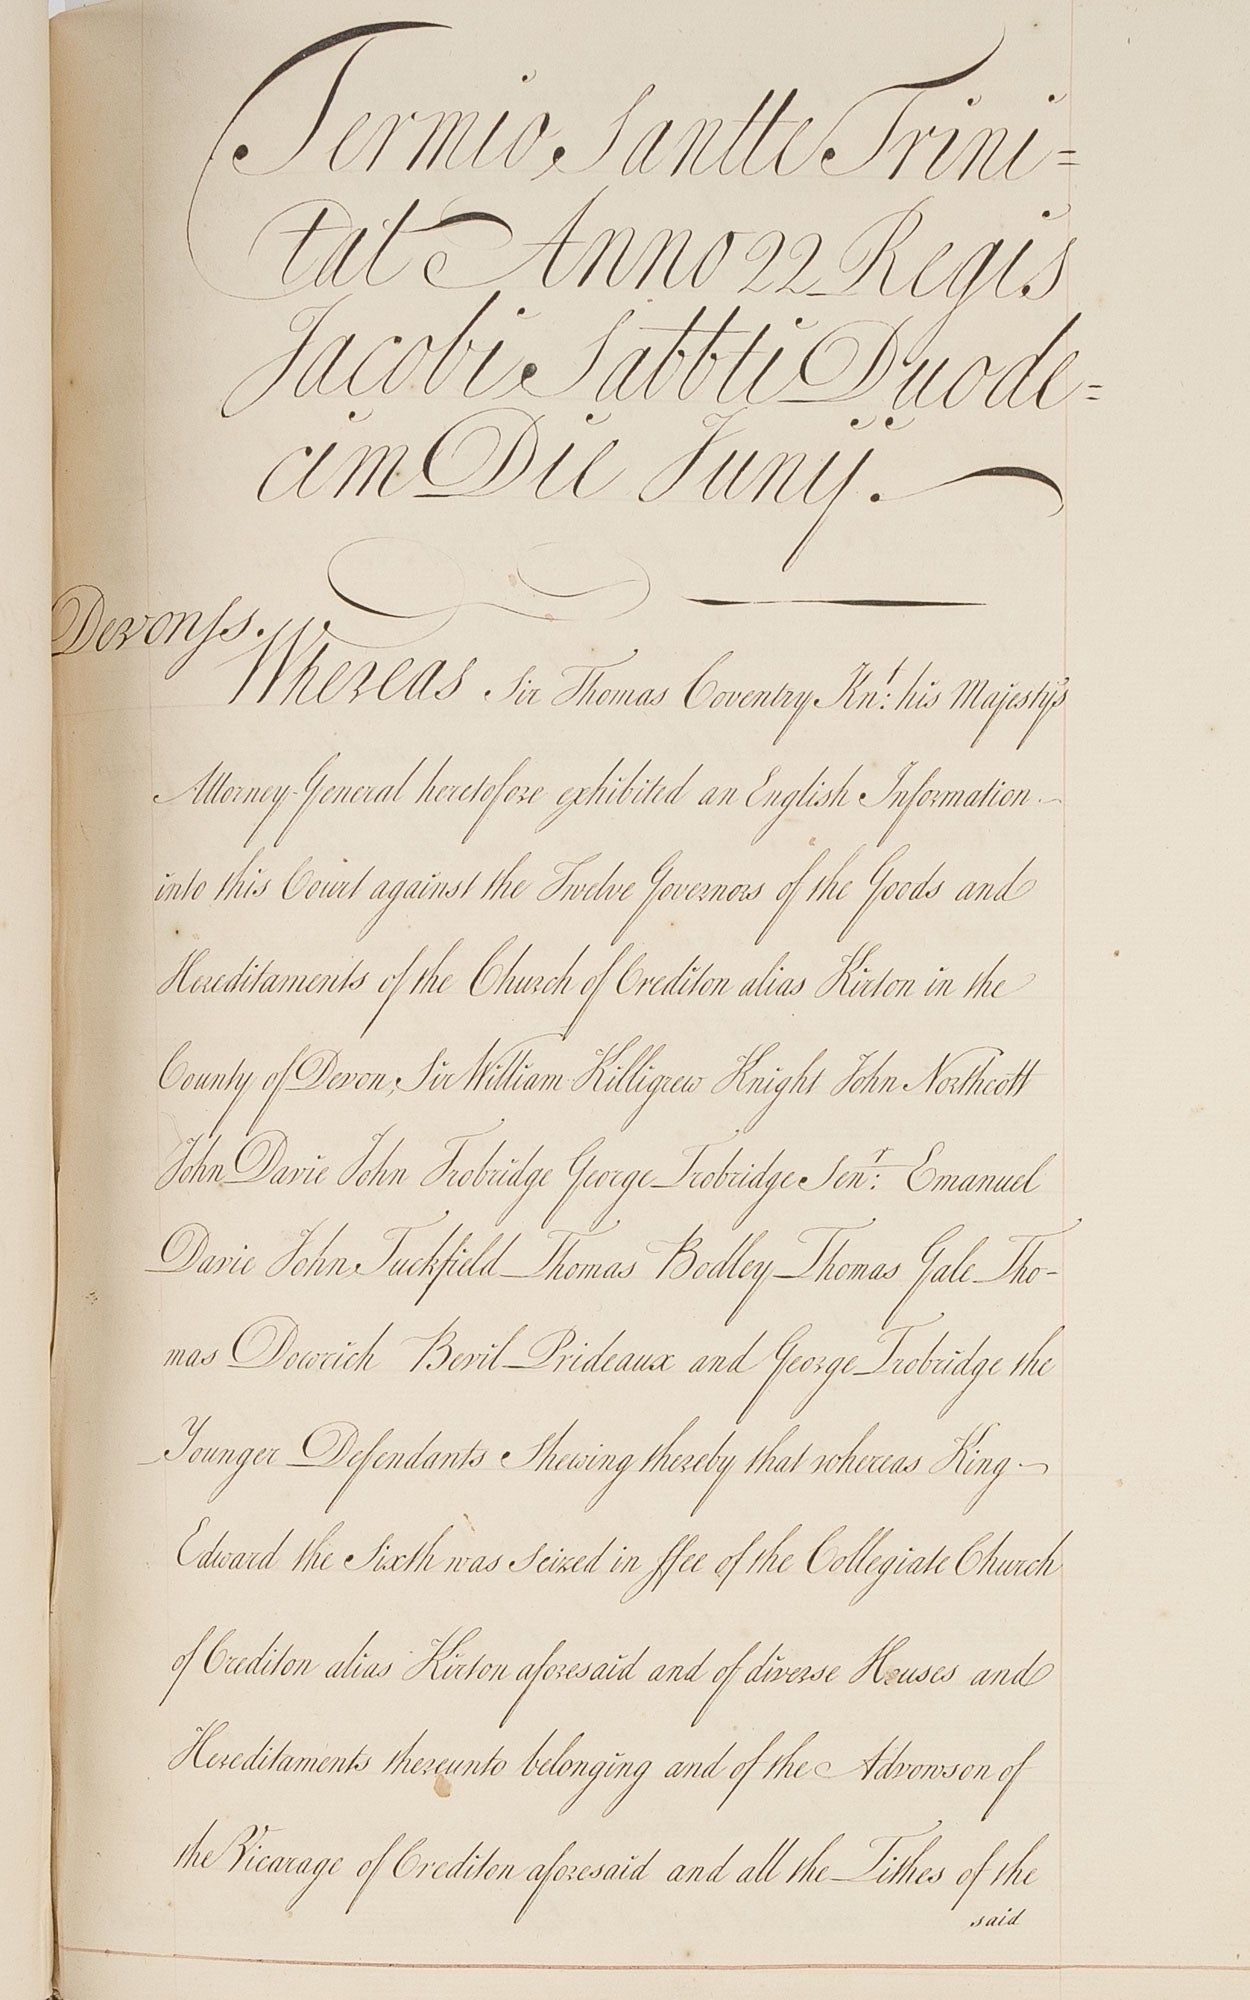 Termio Santte Trini=
tat Anno 22 Regis
Jacobi Sabbti Duode=
cim Die Junij.
Devonss.
Whereas Sir Thomas Coventry Knt: his Majesty's
Attorney General heretofore exhibited an English Information
into this Court against the Twelve Governors of the Goods and
Hereditaments of the Church of Crediton alias Kirton in the
County of Devon, Sir William Killigrew Knight John Northcott
John Davie John Trobridge George Trobridge Senr: Emanuel
Davie John Tuckfield Thomas Bodley Thomas Gale Tho-
mas Dowrich Bevil Prideaux and George Trobridge the
Younger Defendants Shewing thereby that whereas King
Edward the Sixth was Seized in ffee of the Collegiate Church
of Crediton alias Kirton aforesaid and of diverse Houses and
Hereditaments thereunto belonging and of the Advowson of
the Vicarage of Crediton aforesaid and all the Tithes of the
said